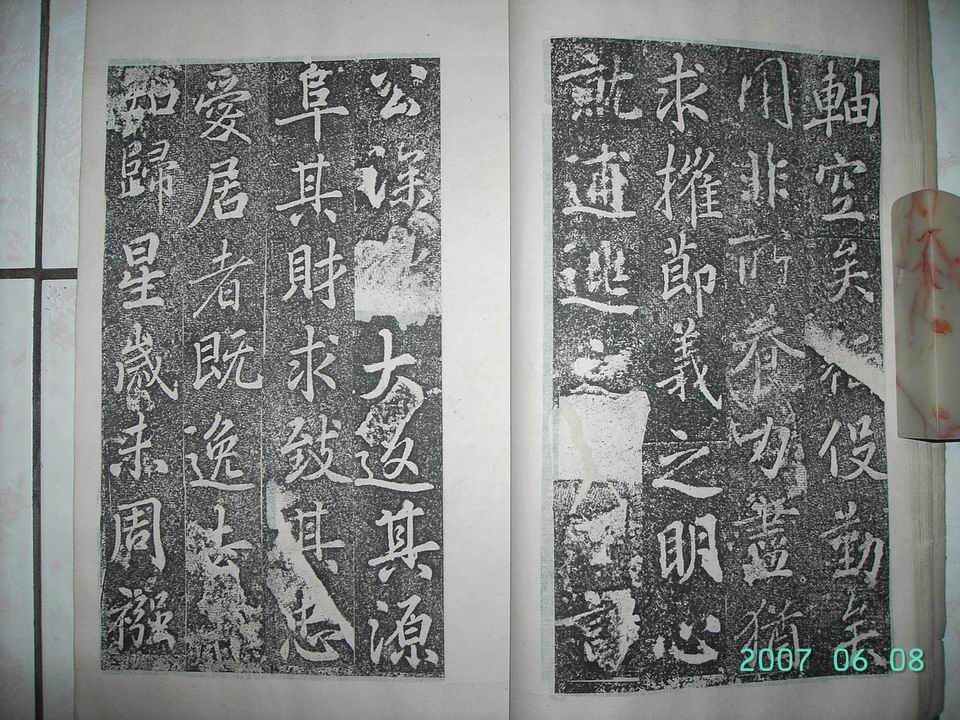 軸空矣 役勤矣
用非所養力盡猶
求摧節義之明心
就逋逃之
公深 大返其源
阜其財求致其忠
愛居者既逸去
如歸星歲未周襁
2007 06 08